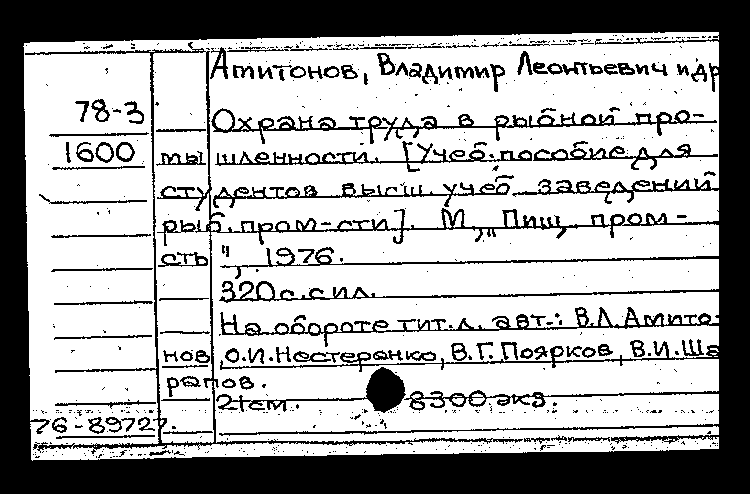 Амитонов, Владимир Леонтьевич и др
78-3
Охрана труда в рыбной про-
1600 мышленности. [Учеб. пособие для
студентов высш. учеб. заведений
рыб. пром-сти]. М., „Пищ. пром-
сть", 1976.
320 с. с ил.
На обороте тит. л. авт.: В.Л. Амито-
нов, О.И. Нестеренко, В.Г. Поярков, В.И. Ша
рапов.
21 см. 8300 экз.
76-89727.